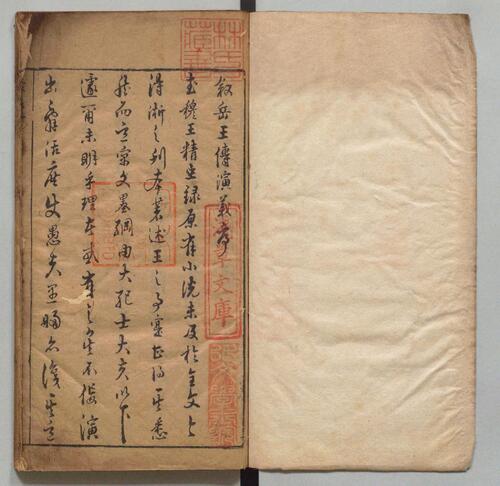 林氏藏書
敘岳王傳演義序
武穆王精忠錄原有小說未及於全文今
得浙之刊本著述王之事實甚得其悉
然而意寓文墨綱由大紀士大夫以下
遽爾未明乎理者或有之矣不演
出辭話庶使愚夫愚婦亦識其意
淺草文庫